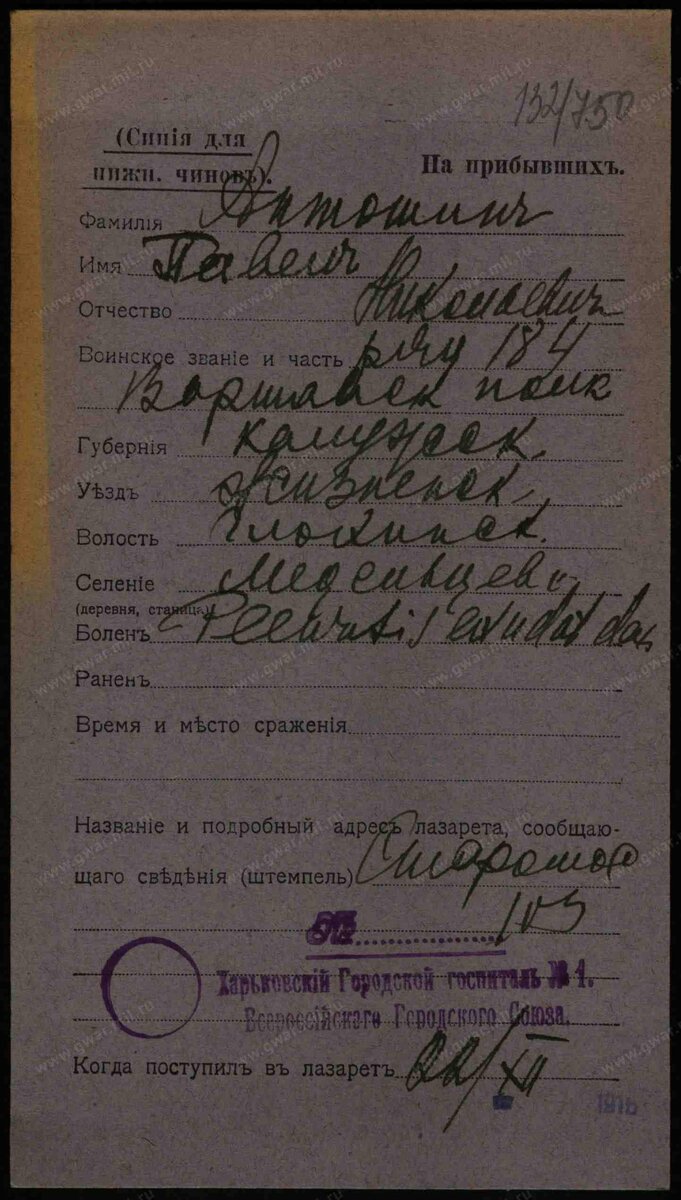 132/750
(Синія для
нижн. чиновъ). На прибывшихъ.
Фамилія Антошинъ
Имя Павелъ
Отчество Николаевичъ
Воинское званіе и часть ряд 184
Варшавск полк
Губернія Калужск.
Уѣздъ Жизненск.
Волость
Селеніе
(деревня, станица)
Боленъ Pleuritis exudat dex
Раненъ
Время и мѣсто сраженія
Названіе и подробный адресъ лазарета, сообщаю-
щаго свѣдѣнія (штемпель)
№
Харьковскій Городской госпиталь № 1.
Всероссійскаго Городского Союза.
Когда поступилъ въ лазаретъ 22/XII
1916